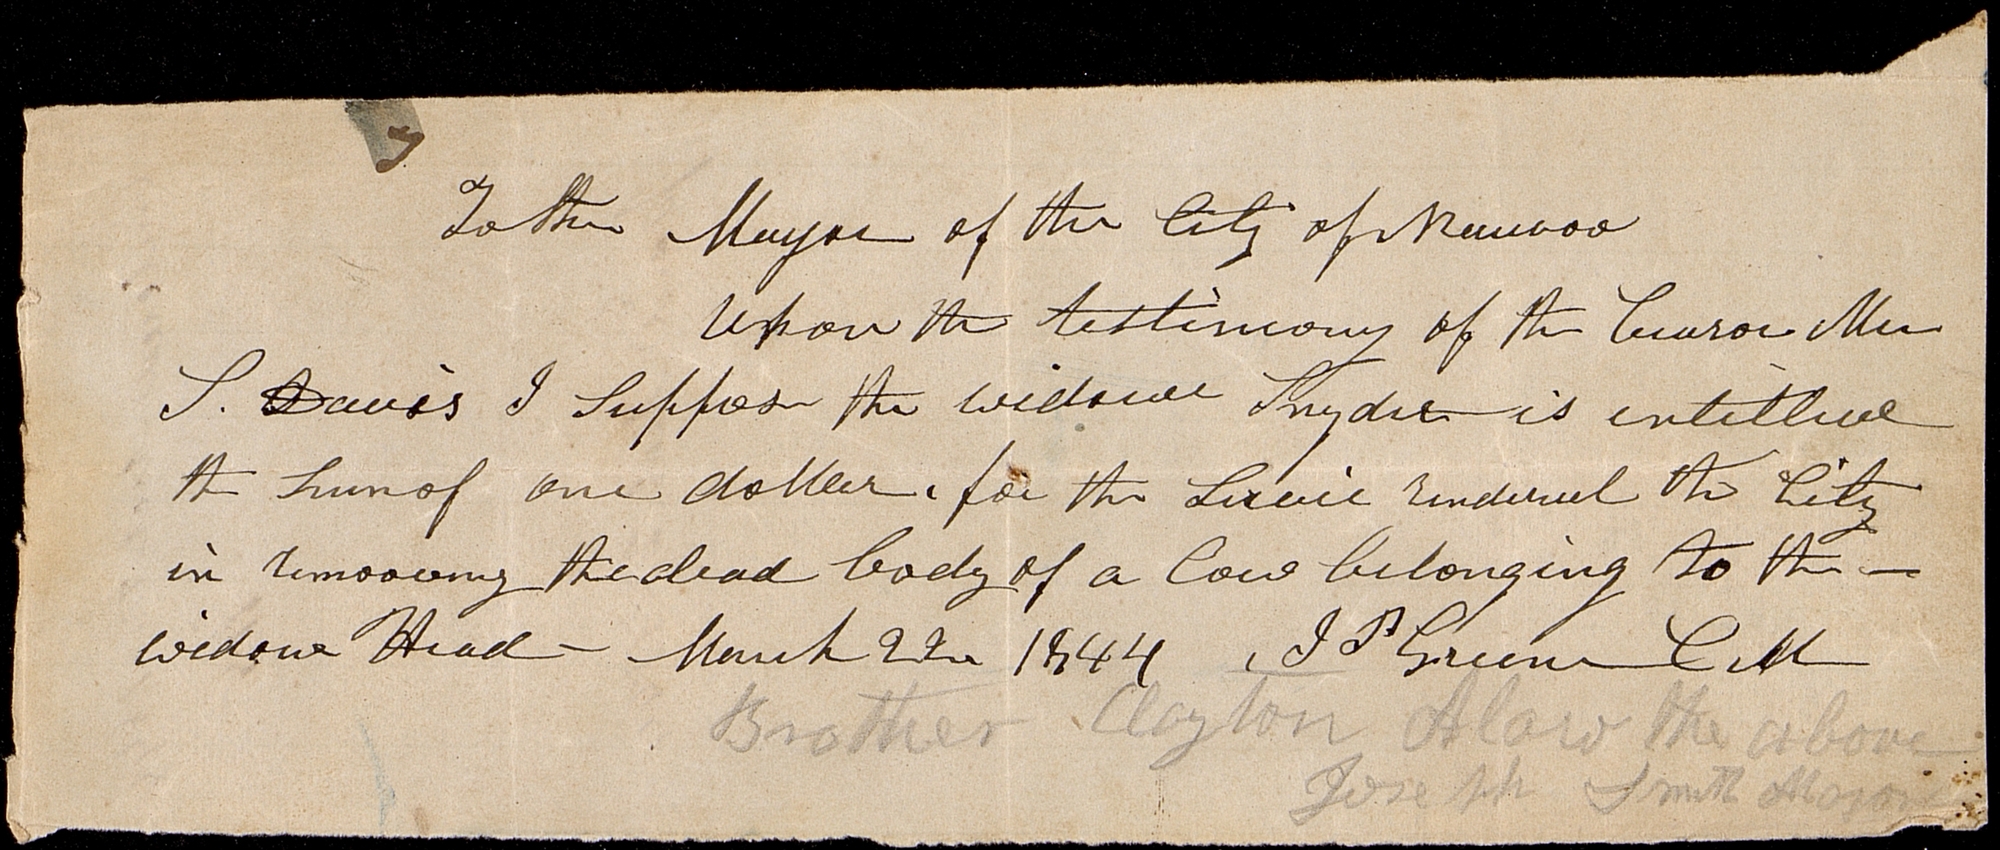 To the Mayor of the City of Nauvoo
Upon the testimony of the
S. Davis I Suppose the widow Snyder is intitled
the sum of one dollar for the Service rendered the City
in removeing the dead body of a Cow belonging to the —
widow Head — March 22 1844 J P Green C M
Brother Clayton Alow the above
Joseph Smith Mayor